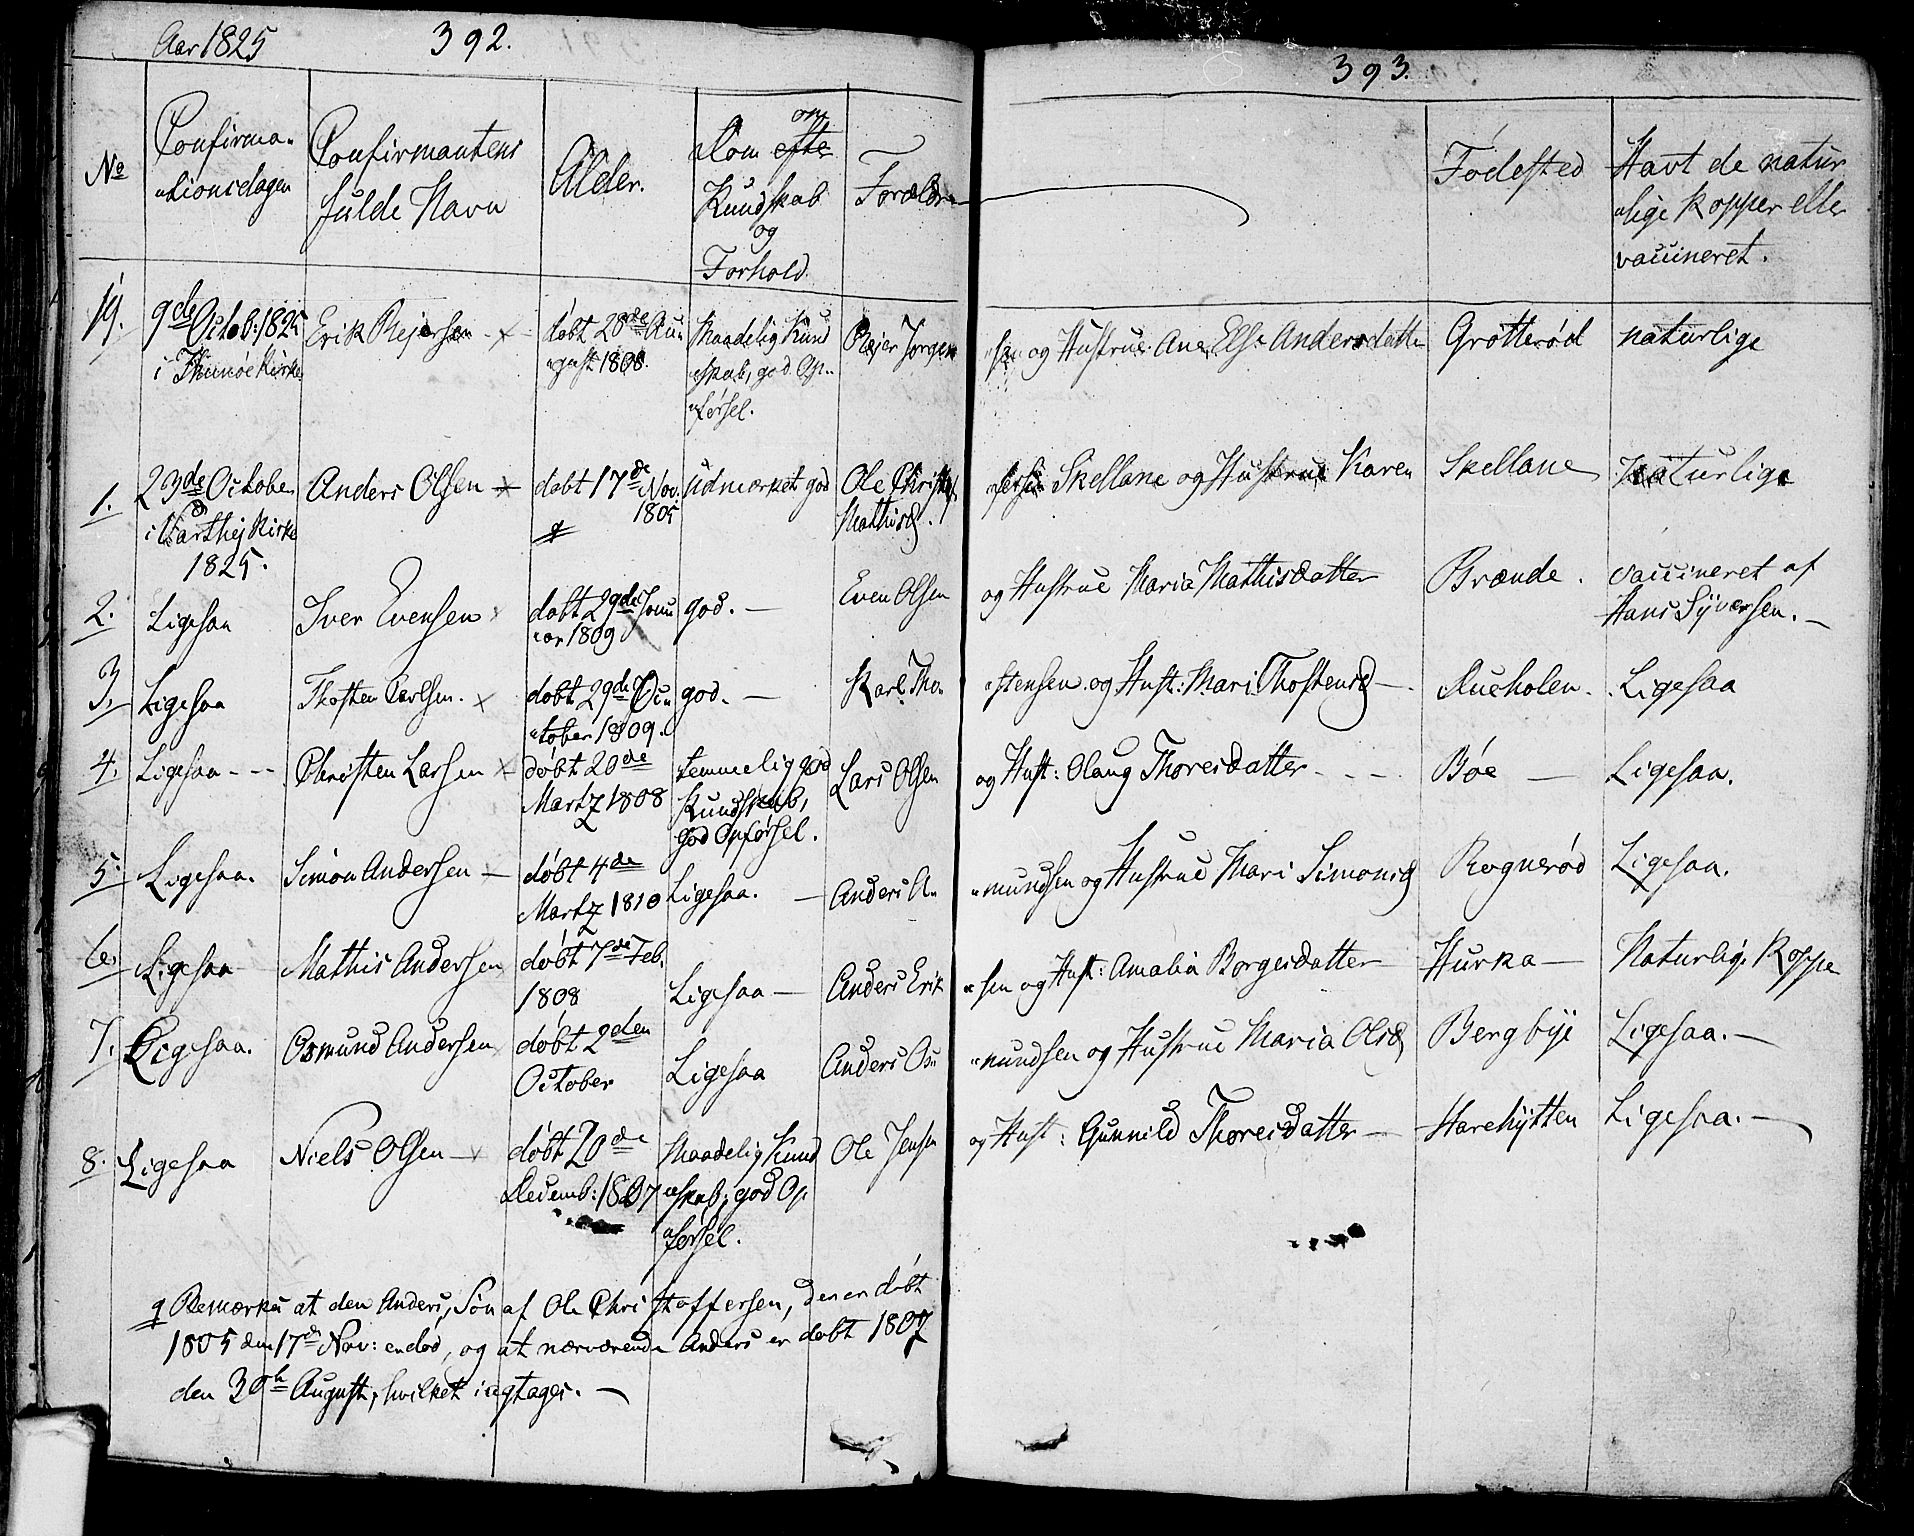 Aar 1825
392.
No
Confirma-
tionsdagen
Confirmantens
fulde Navn
Alder.
Dom efter om
Kundskab
og
Forhold
Forældre
19.
9de Octob: 1825
i Thunøe Kirke
Erik Rejersen
døbt 28de Au-
gust 1808.
Maadelig Kund
skab, god Op-
førsel.
Rejer Jørgen
1.
23de Octobe
i Varthej Kirke
1825.
Anders Olsen
døbt 17de Nov.
1805
Udmærket god
Ole Christof
Mathisd.
2.
Ligesaa
Iver Evensen
døbt 29de Janu
ar 1809
god.
Even Olsen
3.
Ligesaa
Thosten Carlsen.
døbt 29de Oc-
tober 1809.
god.
Karl Tho-
4.
Ligesaa
Christen Larsen
døbt 20de
Martz 1808
temmelig god
Kundskab,
god Opførsel.
Lars Olsen
5.
Ligesaa.
Simon Andersen
døbt 4de
Martz 1810
Ligesaa.
Anders A-
6.
Ligesaa
Mathis Andersen
døbt 7de Feb.
1808
Ligesaa
Anders Erik
7.
Ligesaa.
Osmund Andersen
døbt 2den
October
Ligesaa
Anders Os-
8.
Ligesaa
Niels Olsen
døbt 20de
Decemb: 1807
Maadelig Kund
skab, god Op
førsel.
Ole Jensen
Bemærkes at den Anders, Søn af Ole Christoffersen, der er døbt
1805 den 17de Nov: er død, og at nærværende Anders er døbt 1807
den 30te August, hvilket iagtages.
393.
Fødested
Havt de natur
lige Kopper eller
vaccineret.
sen og Hustrue Ane Else Andersdatter
Grøtterød
naturlige
fersen Skellane og Hustrue Karen
Skellane
Naturlige
og Hustrue Maria Mathisdatter
Brænde.
vaccineret af
Hans Syversen.
stensen og Hust: Mari Thostensd
Rueholen.
Ligesaa
og Hust: Olaug Thoresdatter
Bøe
Ligesaa.
mundsen og Hustrue Mari Simonsd
Rognerød
Ligesaa.
sen og Hust: Amalia Borgersdatter
Hurka
Naturlige Koppe
mundsen og Hustrue Maria Olsd
Bergbye
Ligesaa.
og Hust: Gunnild Thoresdatter
Harehytten
Ligesaa.